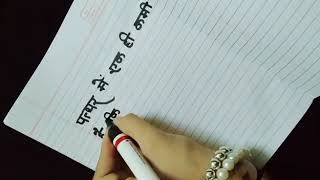 पत्थर में एक ही कमी
है कि